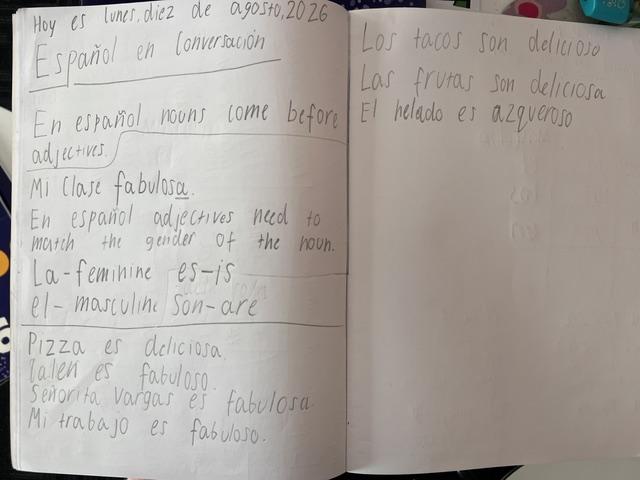 Hoy es lunes, diez de agosto, 2026
Español en Conversación
En español nouns come before
adjectives.
Mi Clase fabulosa.
En español adjectives need to
match the gender of the noun.
La-feminine es-is
el-masculine Son-are
Pizza es deliciosa.
Talen es fabuloso.
Señorita Vargas es fabulosa
Mi trabajo es fabuloso.
Los tacos son delicioso
Las frutas son deliciosa
El helado es azqueroso